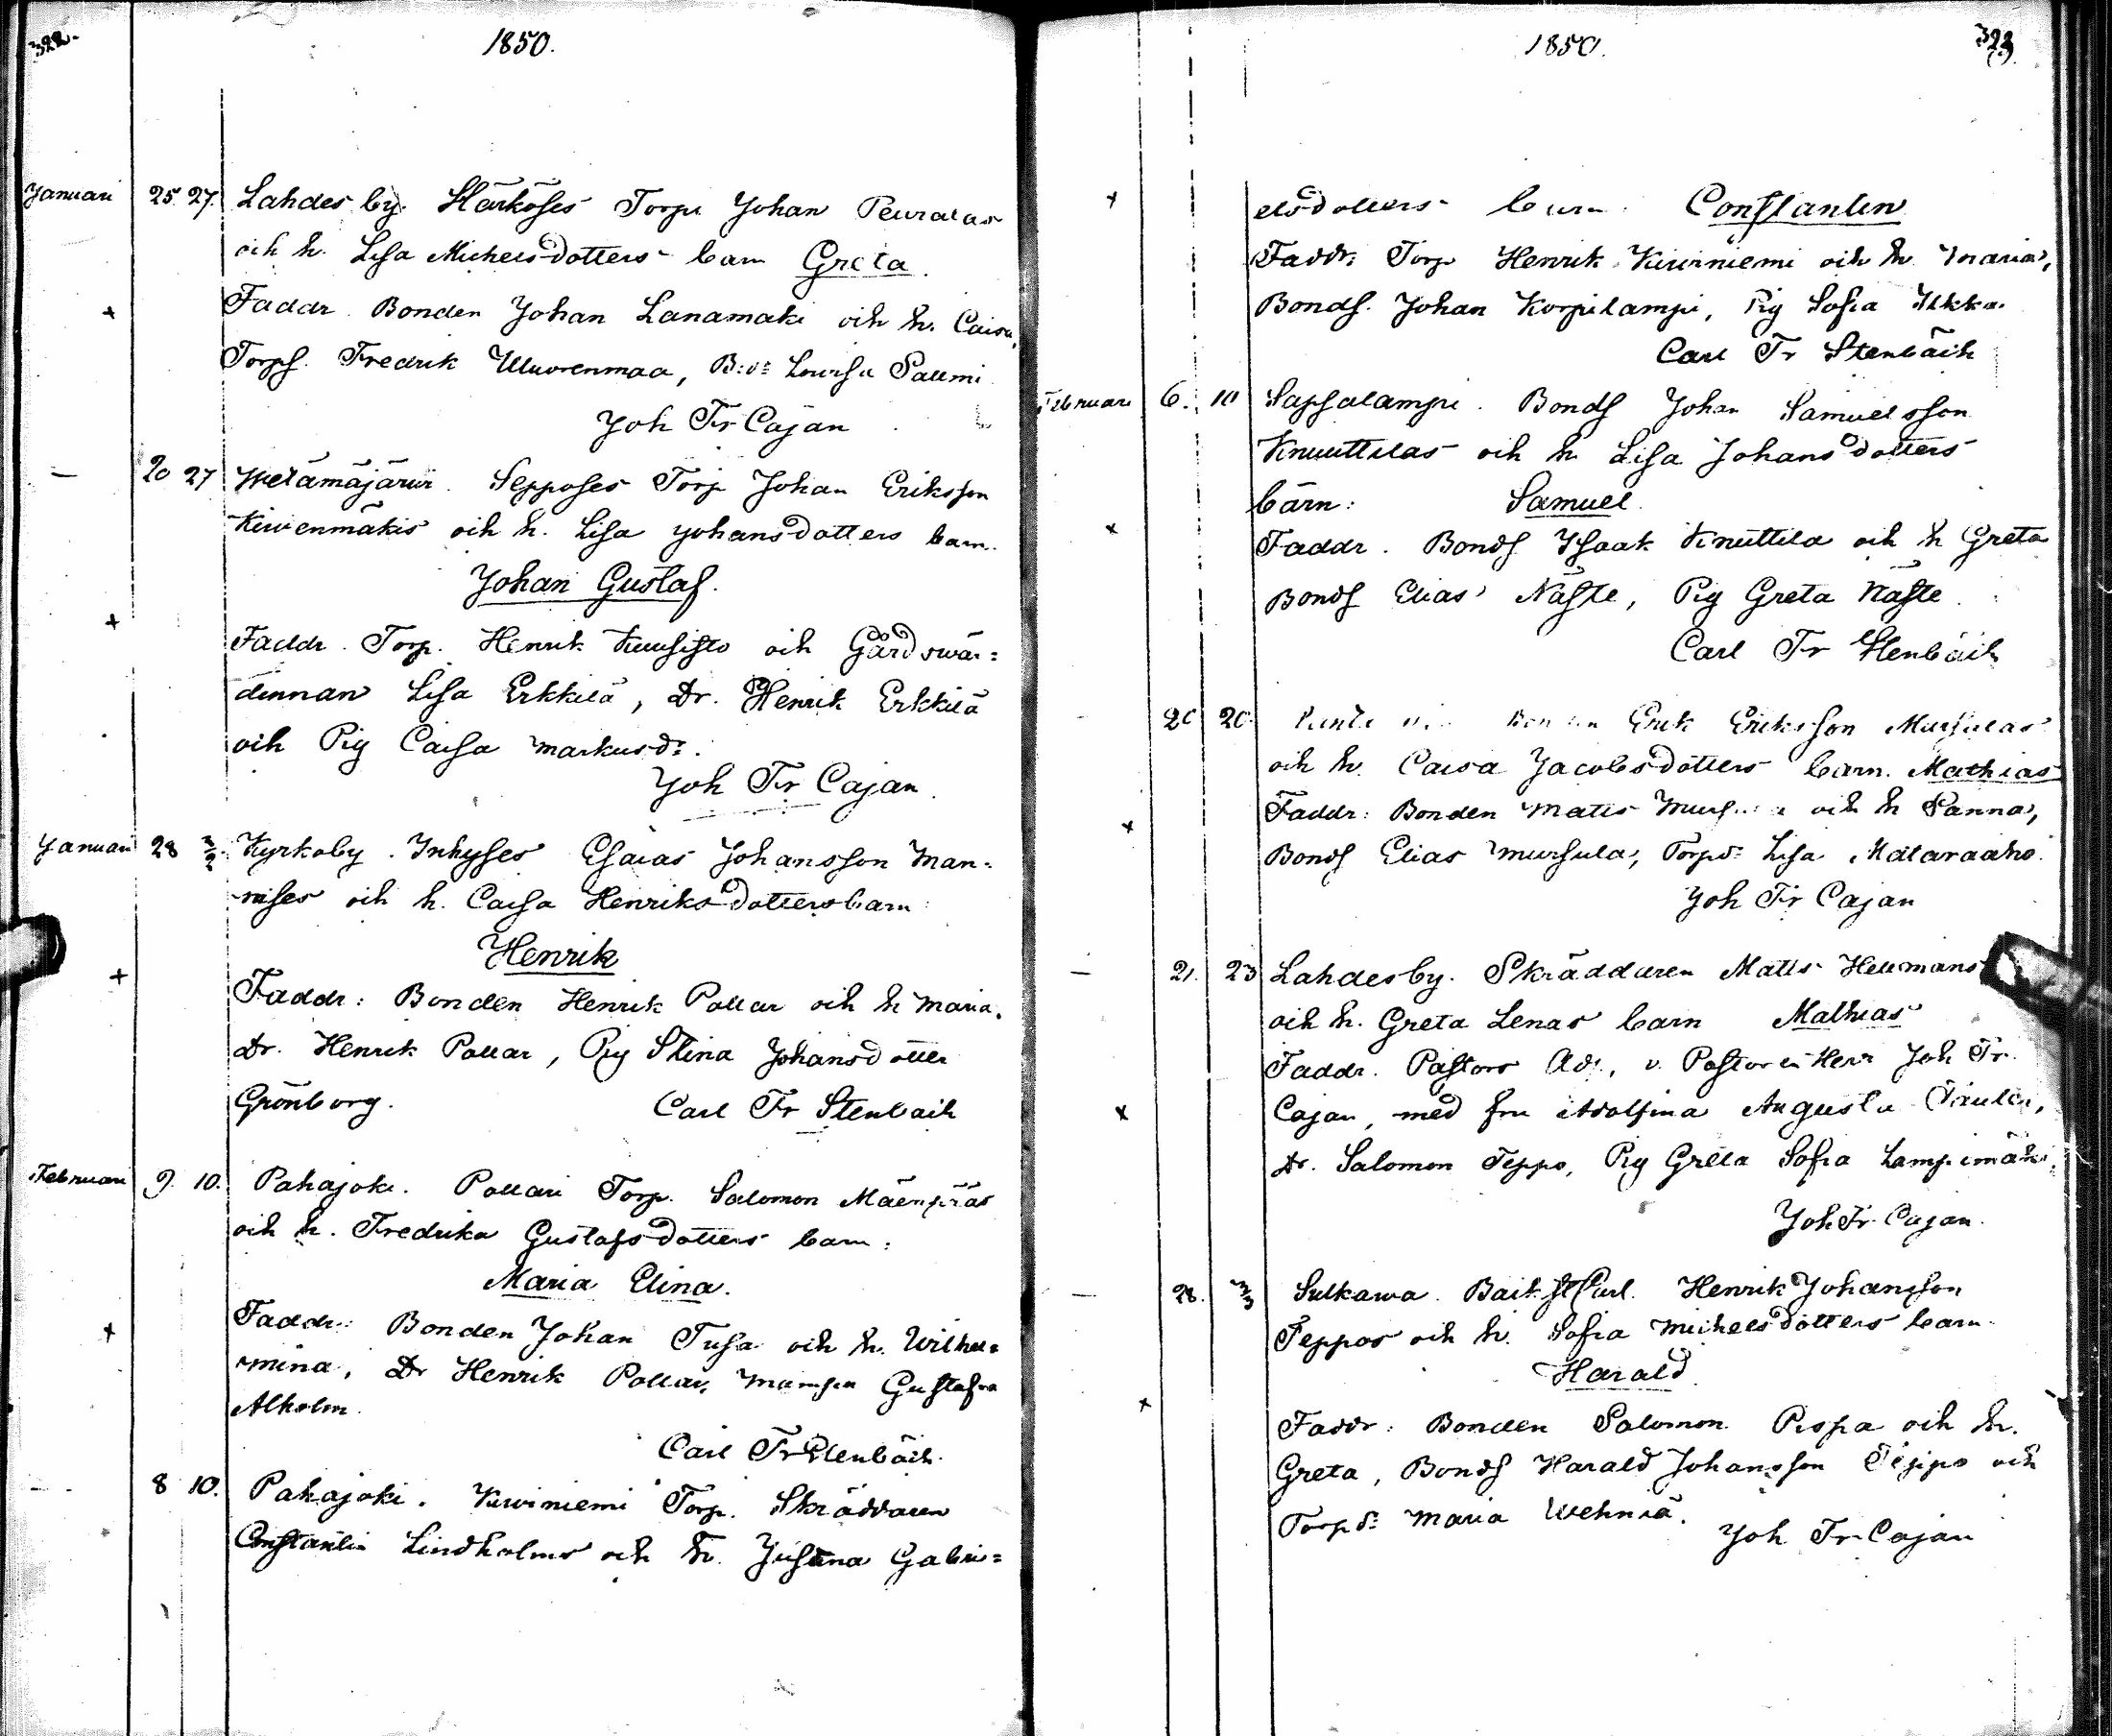 322.
1850.
Januari 25. 27. Lahdes by. Härköses Torp. Johan Peuralas
och h. Lisa Michelsdotters barn Greta.
+ Faddr. Bonden Johan Lanamäki och h. Caisa,
Torps. Fredrik Uluvrenmaa, B:d: Lovisa Pallmi
Joh Fr Cajan
— 20 27 Wetämäjärwi. Sepposes Torp Johan Eriksson
Kiwenmäkis och h. Lisa Johansdotters barn.
Johan Gustaf.
+ Faddr. Torp. Henrik Kuusisto och Gårdswär=
dinnan Lisa Erkkilä, Dr. Henrik Erkkilä
och Pig Caisa Markusd:.
Joh Fr Cajan.
Januari 28 2/2. Kyrkoby. Inhyses Esaias Johansson Man=
nises och h. Caisa Henriksdotters barn
Henrik
+ Faddr: Bonden Henrik Pollar och h Maria.
Dr. Henrik Pollar, Pig Stina Johansdotter
Grönborg. Carl Fr Stenbäck
Februari 9. 10. Pahajoki. Pollari Torp. Salomon Mäenpääs
och h. Fredrika Gustafsdotters barn:
Maria Elina.
+ Faddr: Bonden Johan Tusa och h. Wilhel=
mina, Dr Henrik Pollar, Mamsen Gustafva
Alholm.
Carl Fr Stenbäck.
8 10. Pahajoki. Kiviniemi Torp. Skräddaren
Constantin Lindholms och h. Justina Gabri=
1850.
323.
+ elsdotters barn. Constantin
Faddr: Torp Henrik Kiwiniemi och h. Maria,
Bonds. Johan Korpilampi, Pig Sofia Ilkka.
Carl Fr Stenbäck
Februari 6. 10 Sapsalampi. Bonds Johan Samuelsson
Knuuttilas och h. Lisa Johansdotters
barn: Samuel.
+ Faddr. Bonds Isaak Knuttila och h Greta
Bonds Elias Näste, Pig Greta Näste.
Carl Fr Stenbäck
20 20. Erik Eriksson Mursulas
och h. Caisa Jacobsdotters barn. Mathias
+ Faddr: Bonden Matts och h Sanna,
Bonds Elias Mursula, Torpd: Lisa Mataraaho.
Joh Fr Cajan
— 21. 23 Lahdesby. Skräddaren Matts Hellmans
och h. Greta Lenas barn Mathias
Faddr. Pastors Adj., v. Pastoren Herr Joh Fr.
+ Cajan, med fru Adolfina Augusta
Dr. Salomon Teppo, Pig Greta Sofia Lampimäki,
Joh Fr Cajan.
— 28. 3/3 Sulkawa. Henrik Johansson
Teppos och h. Sofia Michelsdotters barn.
Harald.
+ Faddr: Bonden Salomon Pispa och h.
Greta, Bonds Harald Johansson Teppo och
Torpd: Maria Wehniä.
Joh Fr Cajan